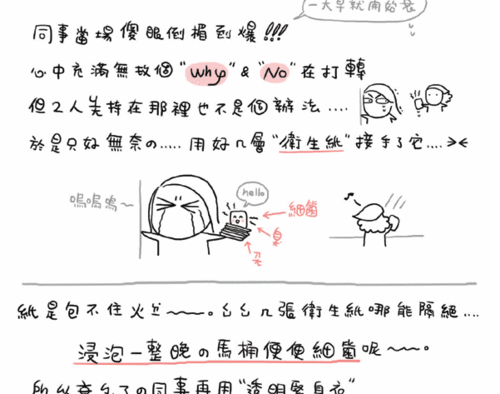 一大早就開始衰
同事當場傻眼倒楣到爆!!!
心中充滿無數個 "why" & "No" 在打轉
但2人美持在那裡也不是個辦法....
於是只好無奈の..... 用好几層 "衛生紙" 接手了它....><
嗚嗚嗚～
hello
細菌
臭
紙是包不住火ㄉ～～。ㄠㄠ几張衛生紙哪能隔絕....
浸泡一整晚の馬桶便便細菌呢～～。